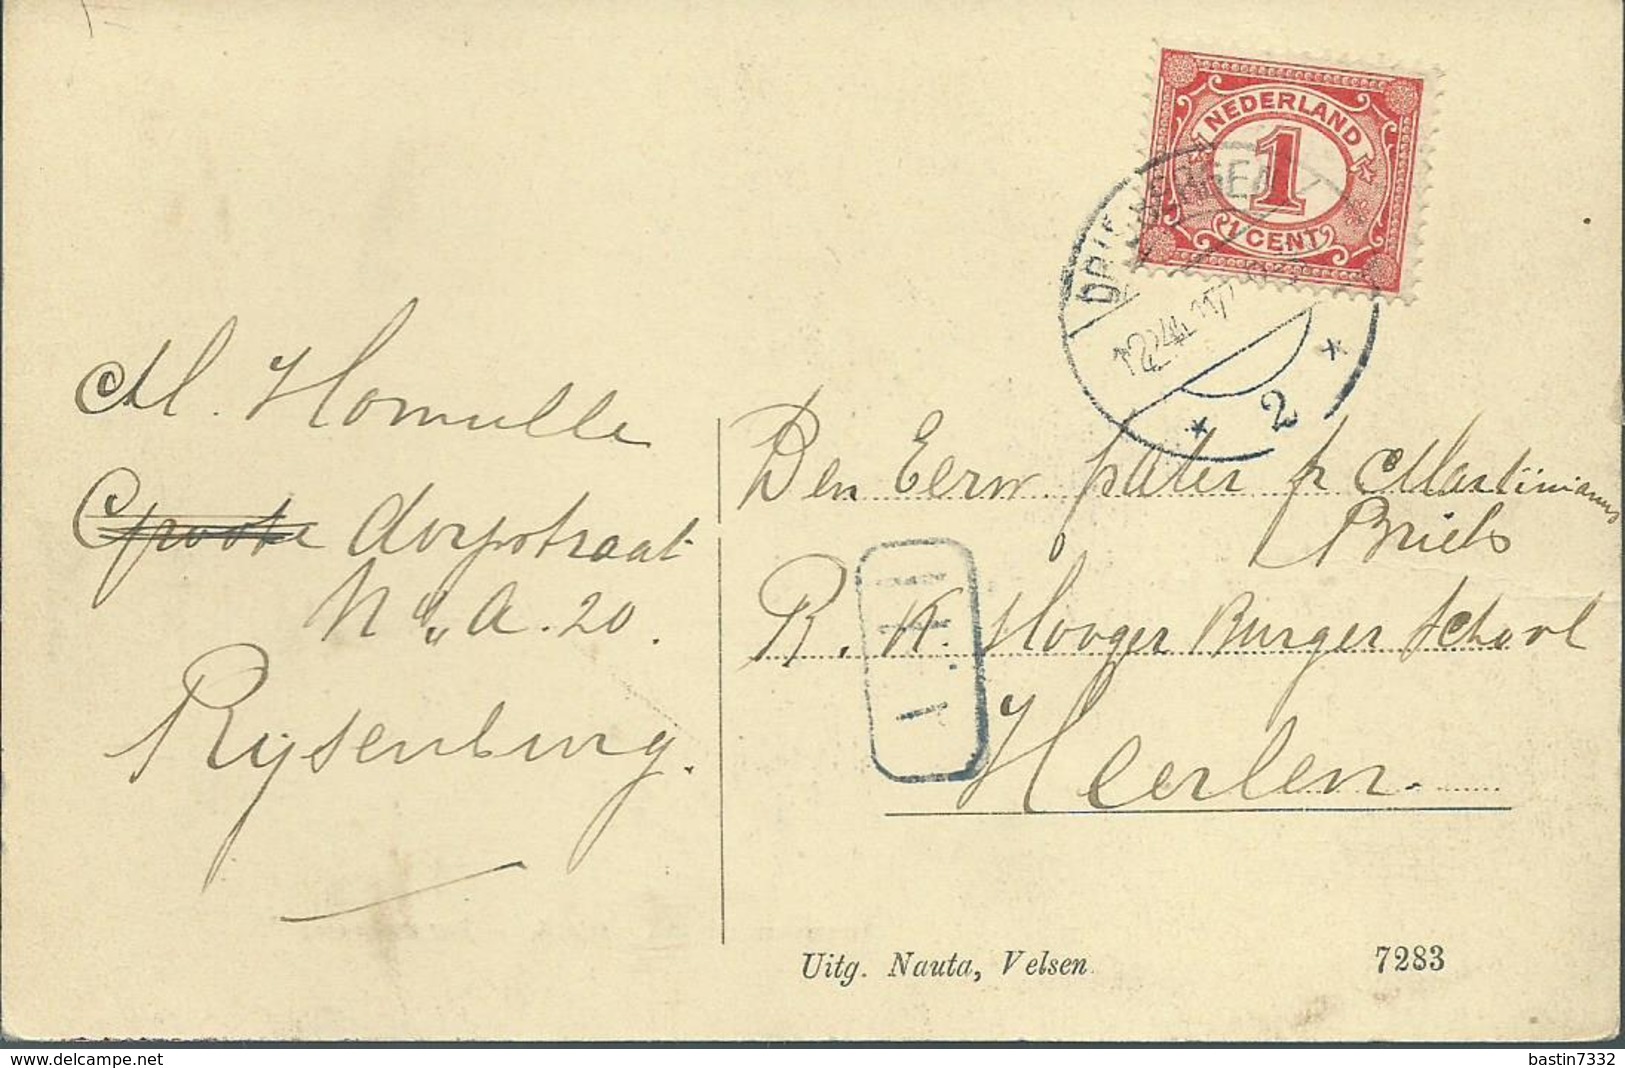 NEDERLAND
1
1 CENT
2
M. Homulle
Groote dorpstraat
A. 20.
Rijsenburg.
Den Eerw. pater fr Martinianus
Briels
R. K. Hooger Burger School
Heerlen.
Uitg. Nauta, Velsen
7283
www.delcampe.net
bastin7332